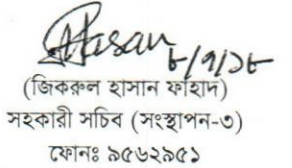 Hasan
৮/৭/১৮
(জিকরুল হাসান ফাহাদ)
সহকারী সচিব (সংস্থাপন-৩)
ফোনঃ ৯৫৬২৯৫১